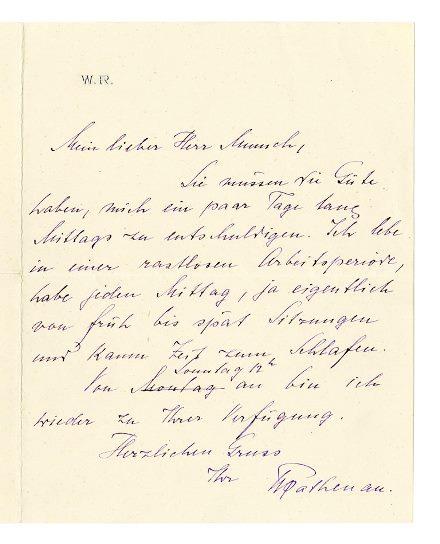 W.R.
Mein lieber Herr Munsch,
Sie müssen die Güte
haben, mich ein paar Tage lang
Mittags zu entschuldigen. Ich lebe
in einer rastlosen Arbeitsperiode,
habe jeden Mittag, ja eigentlich
von früh bis spät Sitzungen
und kaum Zeit zum Schlafen.
Sonntag
Von Montag an bin ich
wieder zu Ihrer Verfügung.
Herzlichen Gruss
Ihr WRathenau.